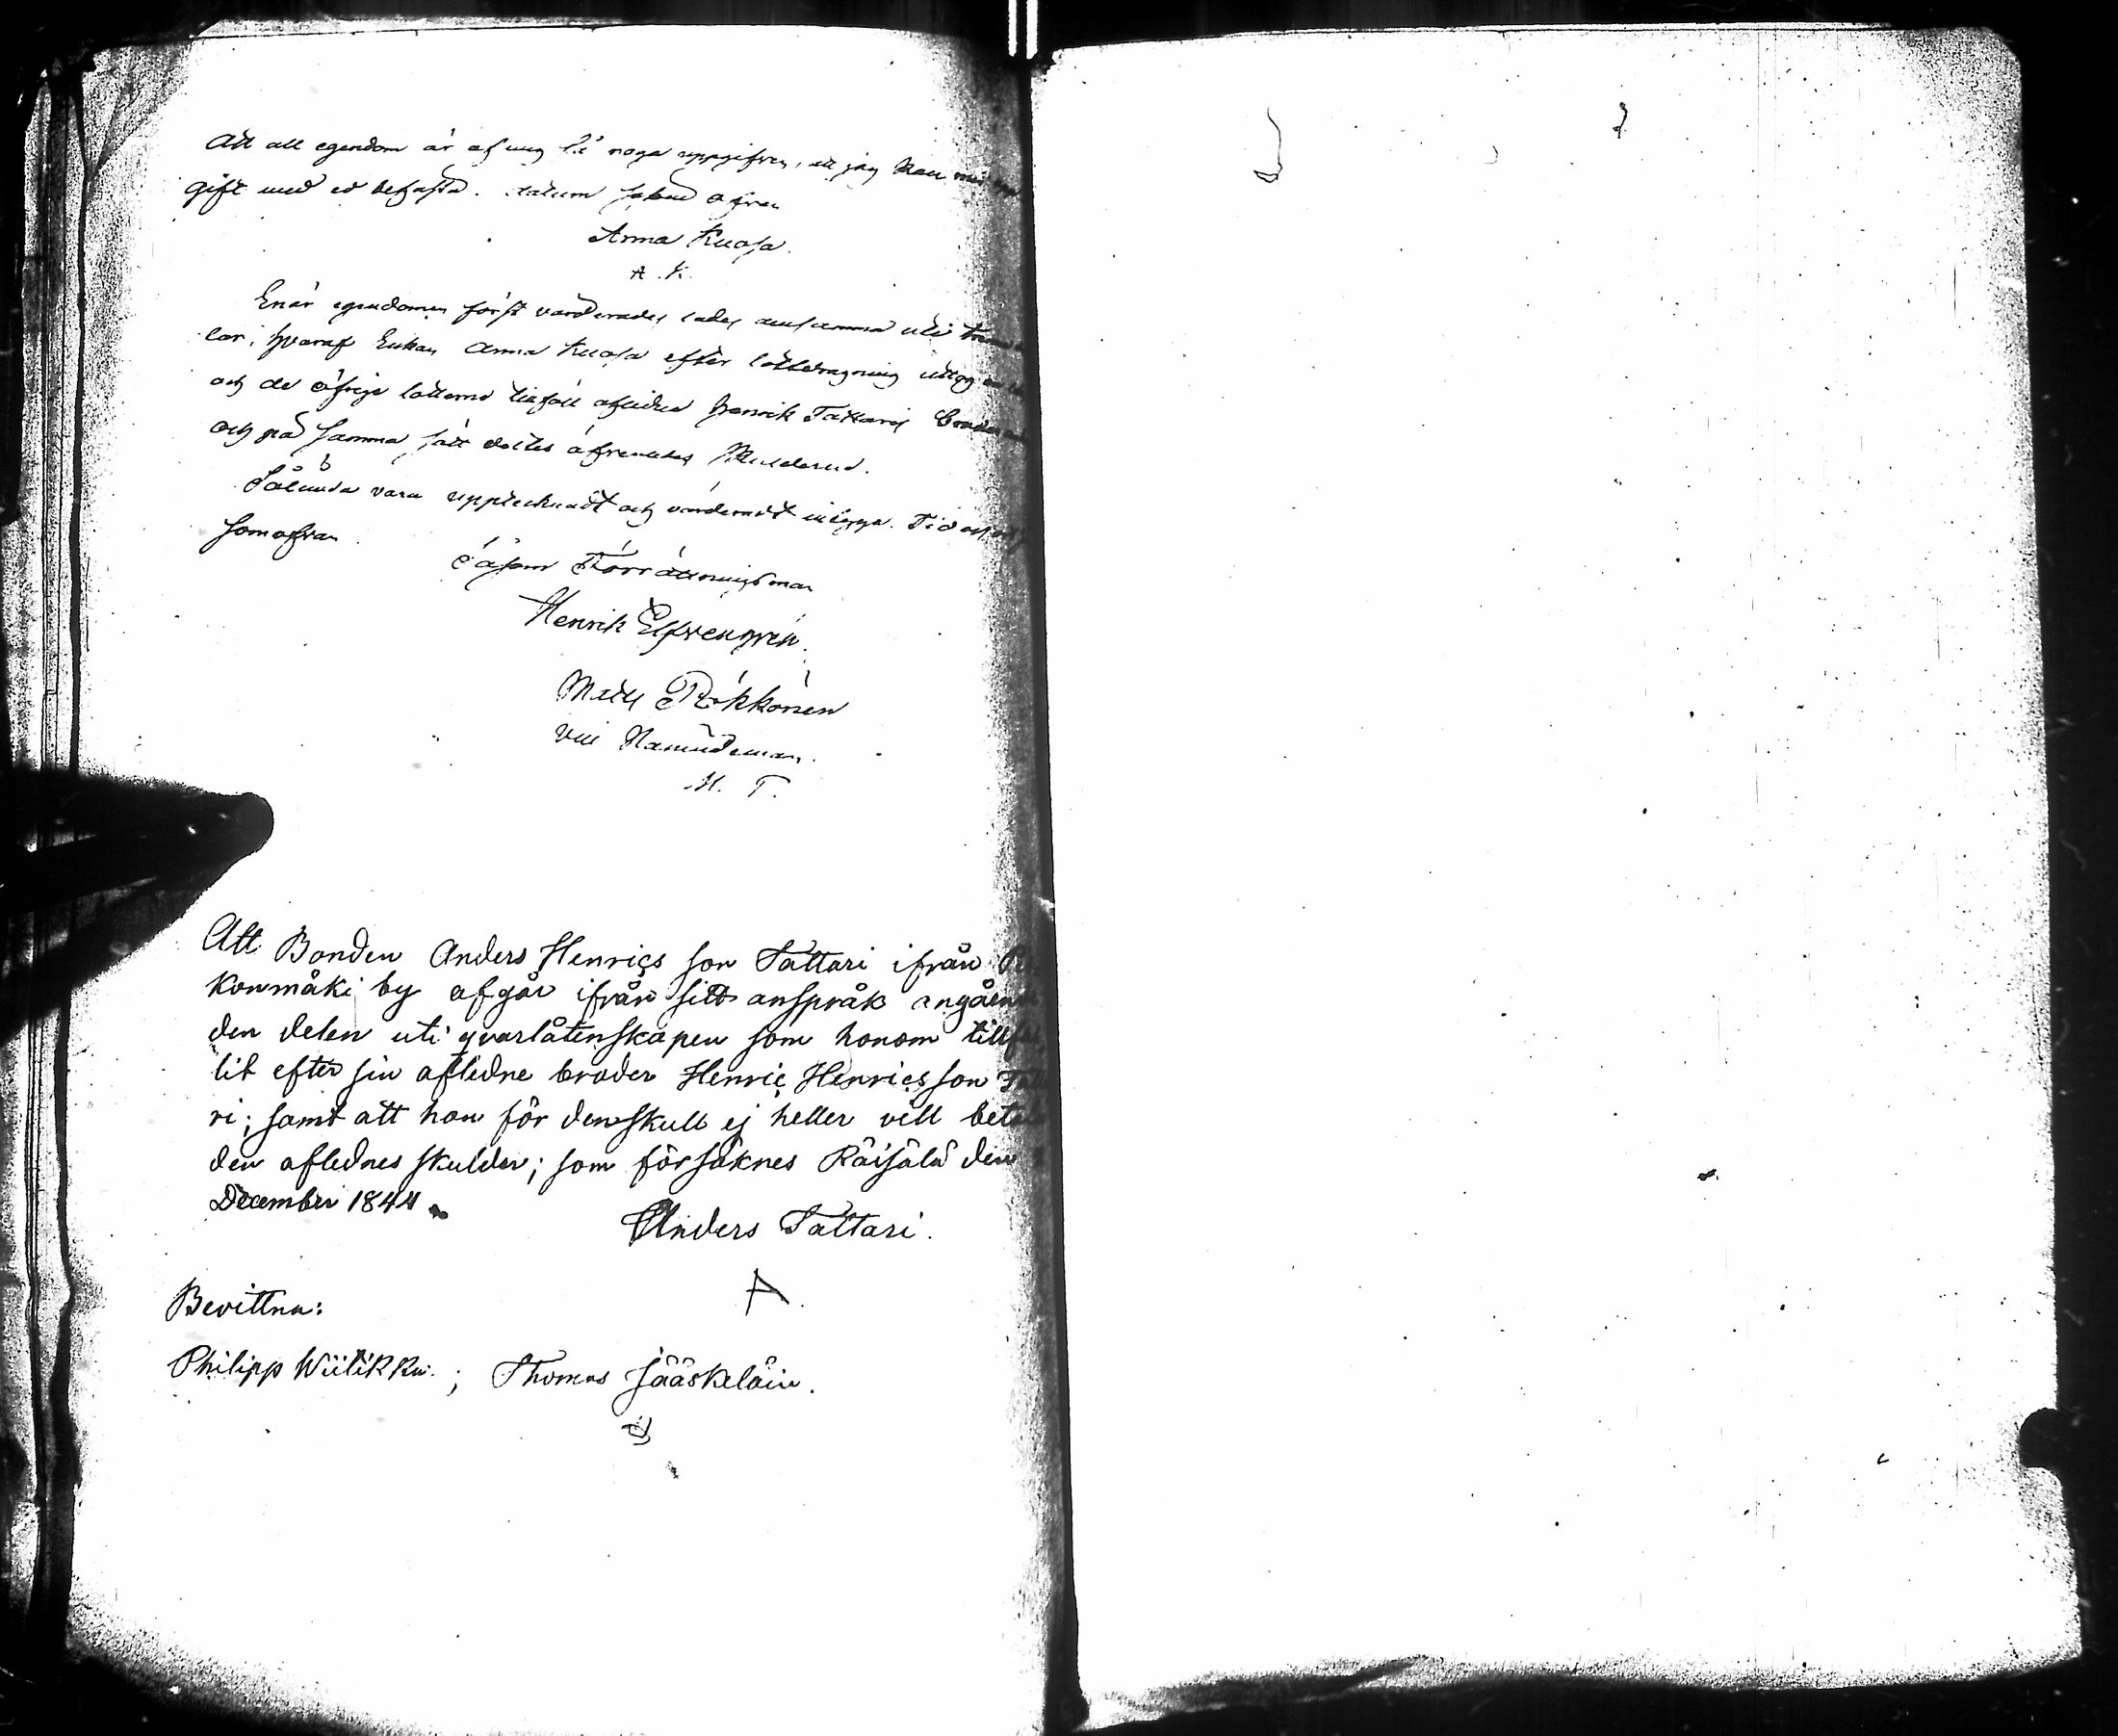 Att all egendom är af mig så noga uppgifven, att jag kan min
gift med ed befästa. datum som ofvan
Anna Kuosa.
A. K.
Enär egendomen först värderades lades densamma uti
lor, hvaraf Enkan Anna Kuosa efter lottdragning uttog en
och de öfrige lotterne tillföll aflidne Henrik Tattaris
och på samma sätt deltes äfvenledes Skulderne.
Sålunda vara upptecknadt och värderadt intyga. Tid och
som ofvan
Såsom Förrättningsman
Henrik Elfvengren.
Matts Pökkönen
Nämndeman.
M. T.
Att Bonden Anders Henrics son Tattari ifrån
konmäki by afgår ifrån sitt anspråk angående
den delen uti qvarlåtenskapen som honom
lit efter sin aflidne broder Henric Henricsson
ri; samt att han för denskull ej heller vill betala
den aflednes skulder; som försäknes Räisälä den
December 1844.
Anders Tattari.
A.
Bevittna:
Philipp Wiilikka. ; Thomas Jääskeläin.